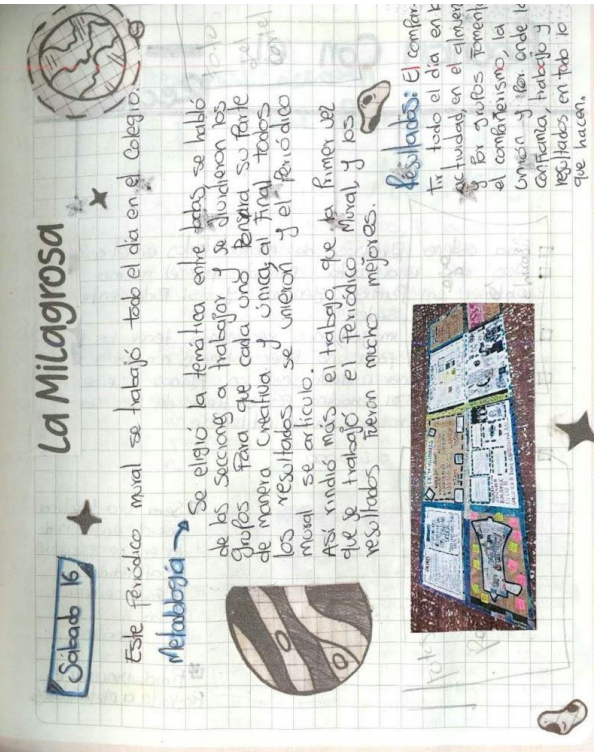 Sábado 16
La Milagrosa
Este Periódico mural se trabajó todo el día en el Colegio.
Metodología → Se eligió la temática entre todas, se habló
de las secciones a trabajar y se dividieron los
grupos Para que cada uno Pensara su Parte
de manera creativa y única, al Final todos
los resultados se unieron y el Periódico
mural se artículo.
Así rindió más el trabajo que la Primer vez
que se trabajó el Periódico Mural y los
resultados Fueron mucho mejores.
Resultados: El compar-
tir todo el día en la
actividad, en el almuer
y Por grupos Foment
el compañerismo, la
Unión y Por ende la
confianza, trabajo y
resultados en todo lo
que hacen.